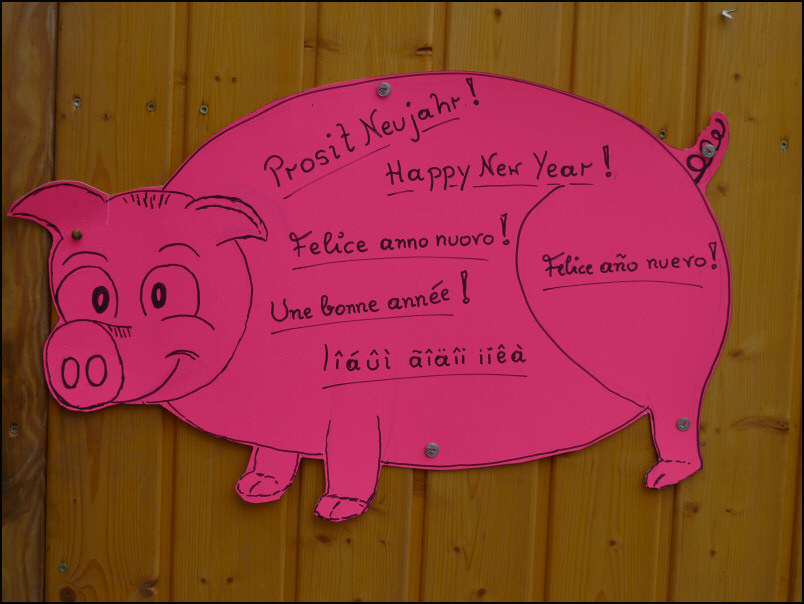 Prosit Neujahr!
Happy New Year!
Felice anno nuovo!
Felice año nuevo!
Une bonne année!